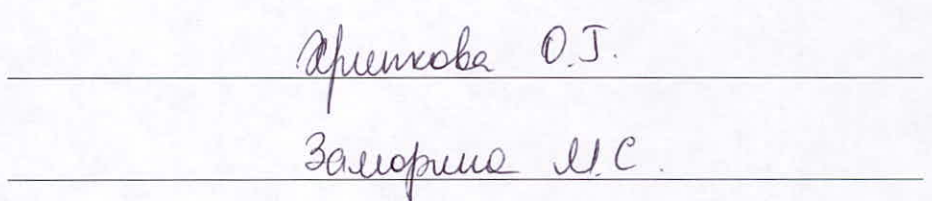 Хрипкова О.Г.
Заморина М.С.